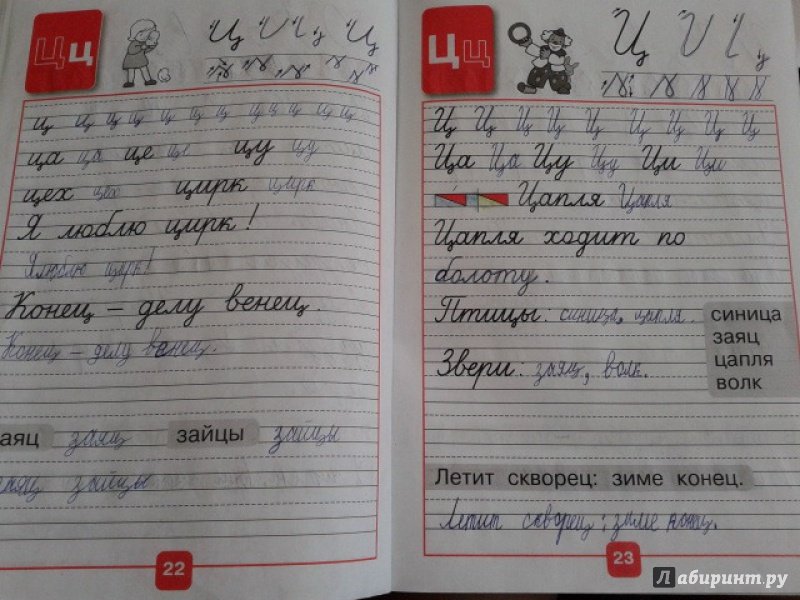 Ц ц
Ц Ц
ц ц ц ц ц ц ц ц ц ц ц ц ц
ца ца це це цу цу
цех цех цирк цирк
Я люблю цирк!
Я люблю цирк!
Конец – делу венец.
Конец – делу венец.
аяц заяц зайцы зайцы
зайцы
22
Ц ц
Ц
Ц Ц Ц Ц Ц Ц Ц Ц Ц
Ца Ца Цу Цу Ци Ци
Цапля Цапля
Цапля ходит по
болоту.
Птицы: синица, цапля.
Звери: заяц, волк.
синица
заяц
цапля
волк
Летит скворец: зиме конец.
Летит скворец: зиме конец.
23
Лабиринт.ру